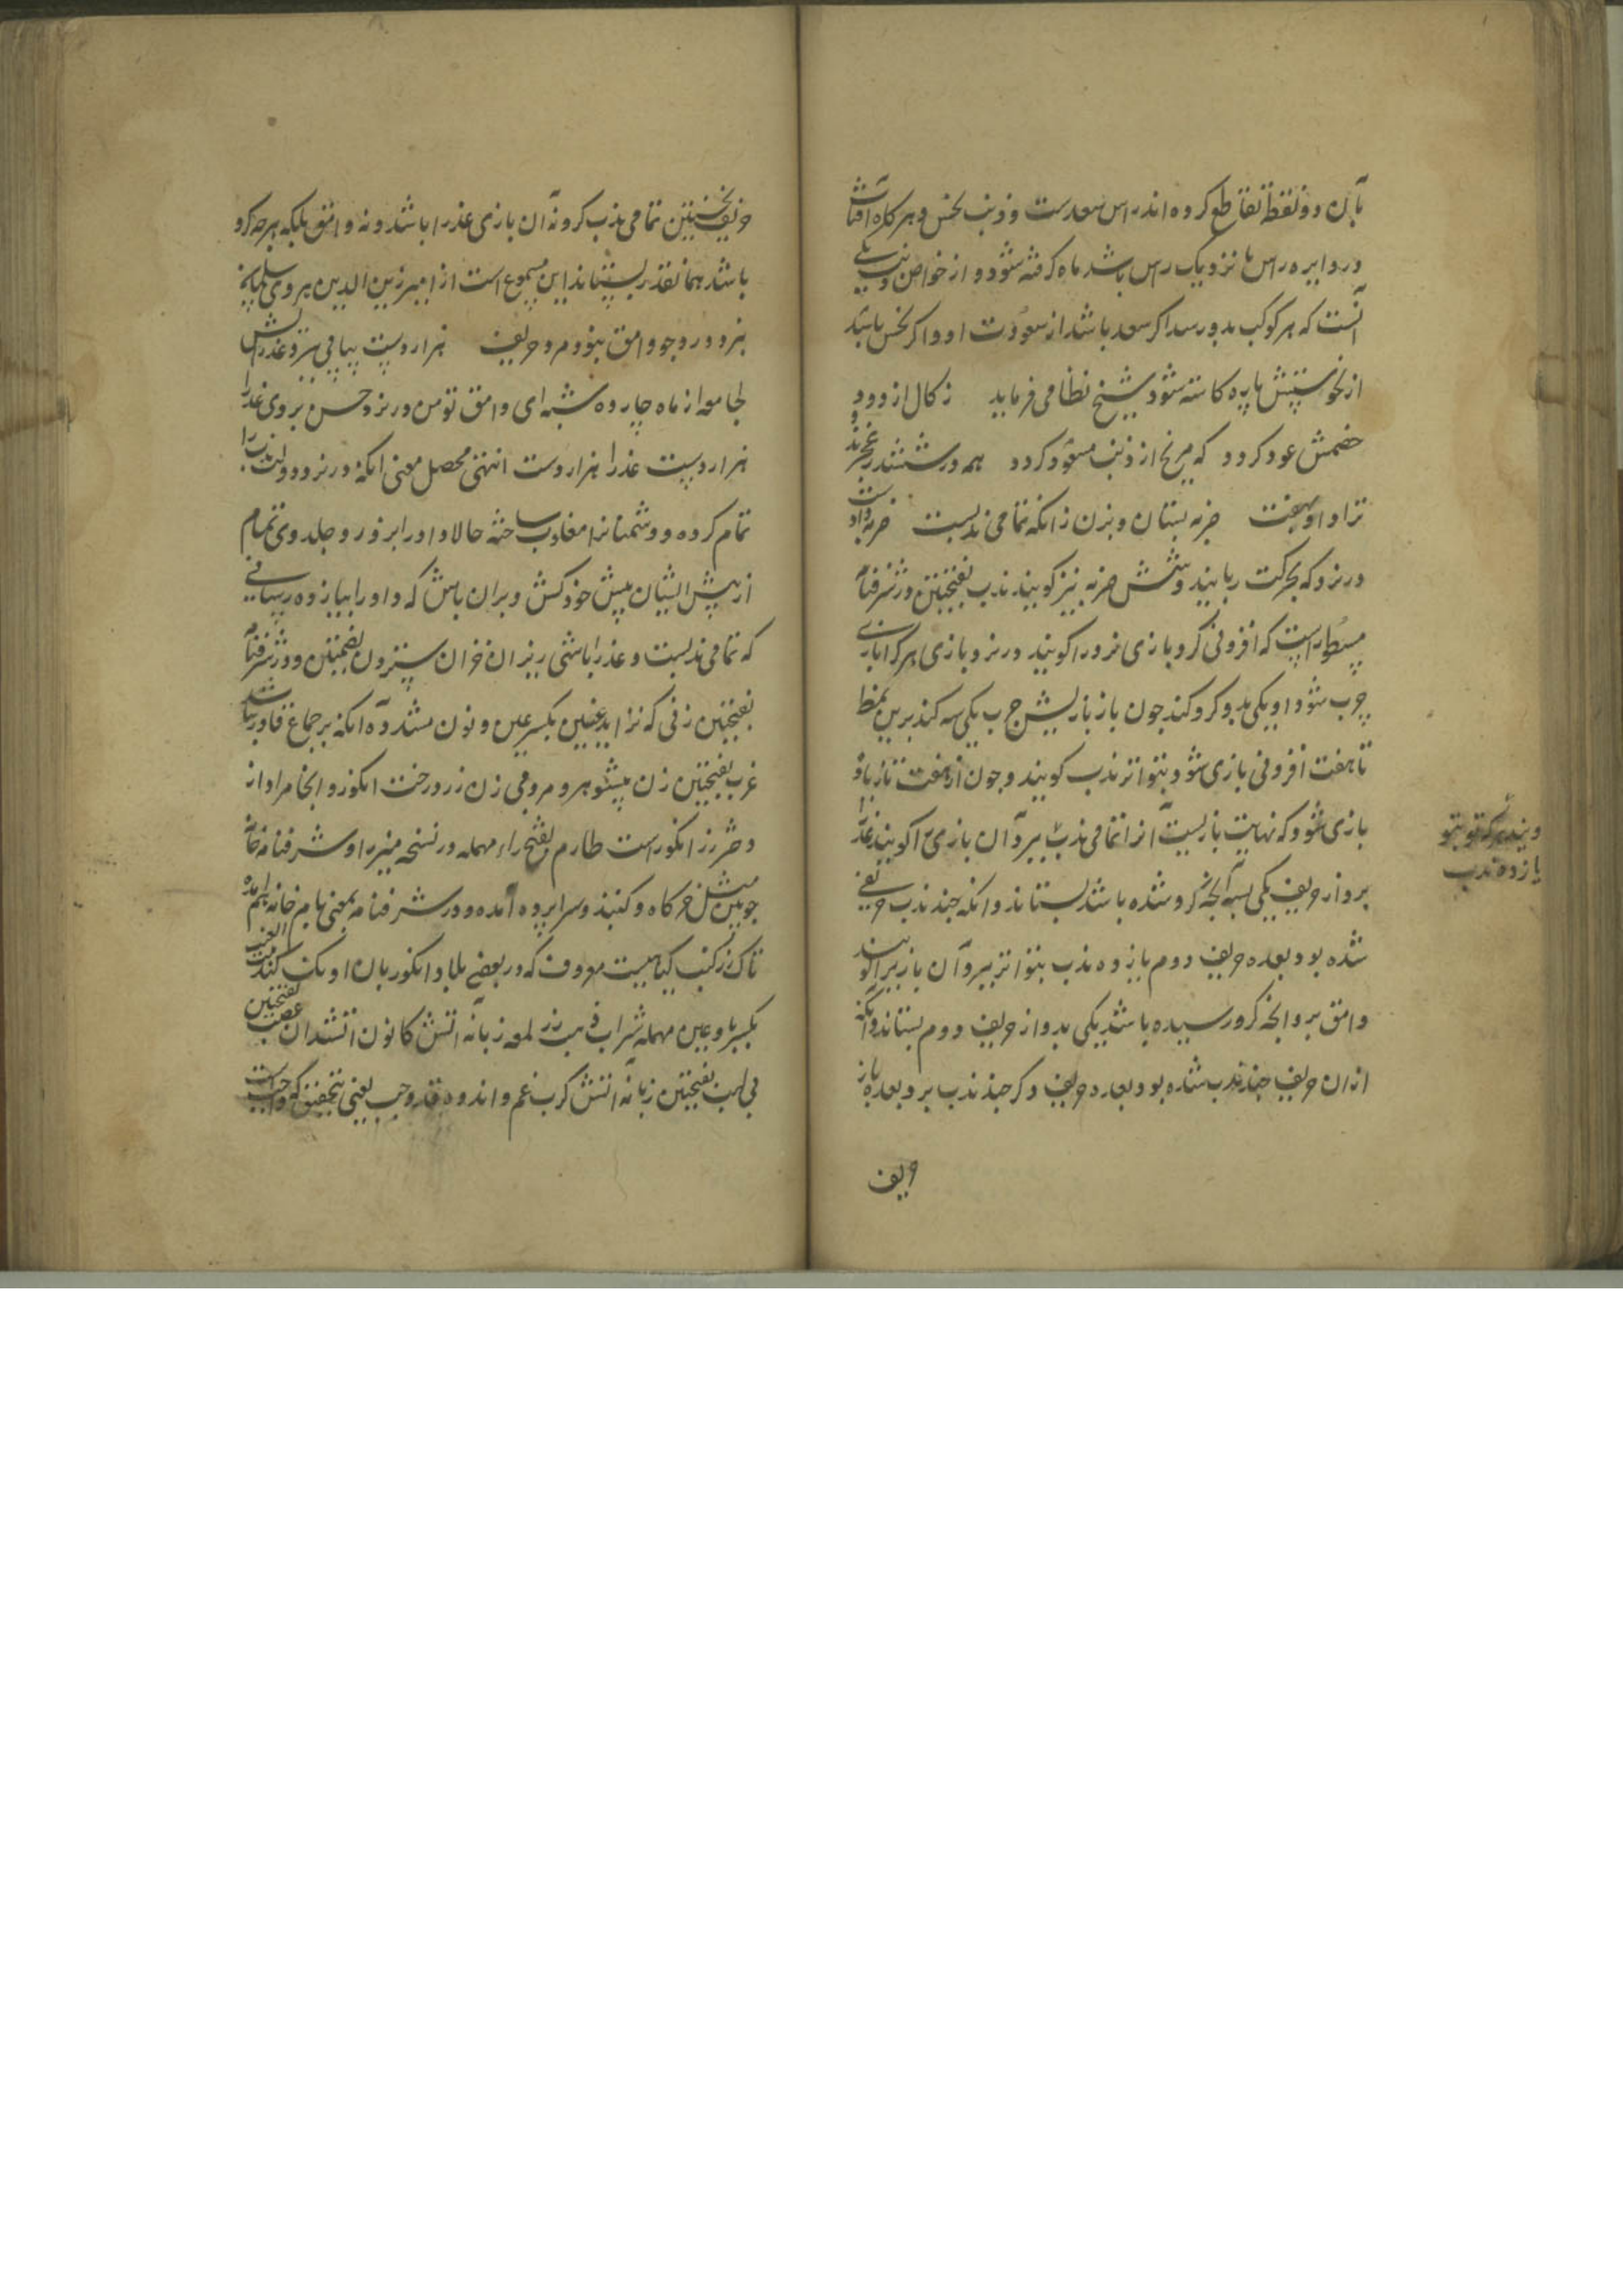 بآن دو نقطه تقاطع کرده اند راس سعدست و ذنب نحس و هر کاه آفتاب
در دایره راس یا نزدیک راس باشد ماه کرفته شود و از خواص ذنب یکی
آنست که هر کوکب بدو رسد اکر سعد باشد از سعودت او و اکر نحس باشد
از نحوستش پاره کاسته شود شیخ نظامی فرماید ز کال از دود
خصمش عود کردد که مریخ از ذنب مسعود کردد همه در ششدر عجزند
ترا داو بهفت ضربه بستان و بزن زانکه تمامی ندبست ضربه
در نرد که بحرکت ربایند و شش ضربه نیز کویند ندب بفتحتین در شرفنامه
مسطورست که افزونی کرو بازی نرد را کویند در نرد بازی هر کرا بازی
چرب شود او یکی بدو کرو کند چون باز بازیش چرب یکی سه کند برین نمط
تا هفت افزونی بازی شود بتواتر ندب کویند و چون از هفت تا یازده
بازی شود که نهایت بازیست آنرا تمامی ندب ببرد آن بازی را کویند عذرا
برد از حریف یکی بسه آنچه کرو شده باشد بستاند و انکه چند ندب حریفی
شده بود بعده حریف دوم یازده ندب بتواتر ببرد آن بازی را کویند
وامق برد آنچه کرو رسیده باشد یکی بدو از حریف دوم بستاند و آنکه
از ان حریف چند ندب شده بود بعده حریف دکر چند ندب برد بعده باز
حریف
یازده ندب
حریف نخستین تمامی ندب کرد نه آن بازی عذرا باشد و نه وامق بلکه هر چه کرو
باشد همانقدر بستاند این مسموع است از امیر زین الدین هروی
نرد درد جو وامق بنود مرد حریف هزار دست پیاپی ببرد عذرایش
لجامعه از ماه چارده شبه ای وامق تو من در نرد حسن بروی عذرا
هزار دست عذرا هزار دست انتهی محصل معنی انکه در نرد دولت ندب را
تمام کرده و دشمنانرا مغلوب ساخته حالا داو را بر فرد و جلدوی تمام
از پیش ایشان پیش خود کش و بران باش که داو را بیازده رسانی
که تمامی ندبست و عذرا باشی ریزان خزان سترون بضمتین و در شرفنامه
بفتحتین زنی که نزاید عنین بکسر عین و نون مشدده انکه بر جماع قادر نباشد
عزب بفتحتین زن بیشوهر و مرد بی زن رز درخت انکور و اینجا مراد از
دختر رز انکور است طارم بفتح راء مهمله در نسخه میرزا و شرفنامه خانه
چوبین مثل خرکاه و کنبد و سراپرده آمده و در شرفنامه بمعنی بام خانه هم آمده
تاک رز کنب کیاهیست معروف که در بعضی بلاد انکور بان اونک کنند
بکسر با و عین مهمله شراب فی بیت رز لمعه زبانه آتش کانون آتشدان عصب بفتحتین
پی لهب بفتحتین زبانه آتش کرب غم و اندوه قد وجب یعنی بتحقیق که واجب